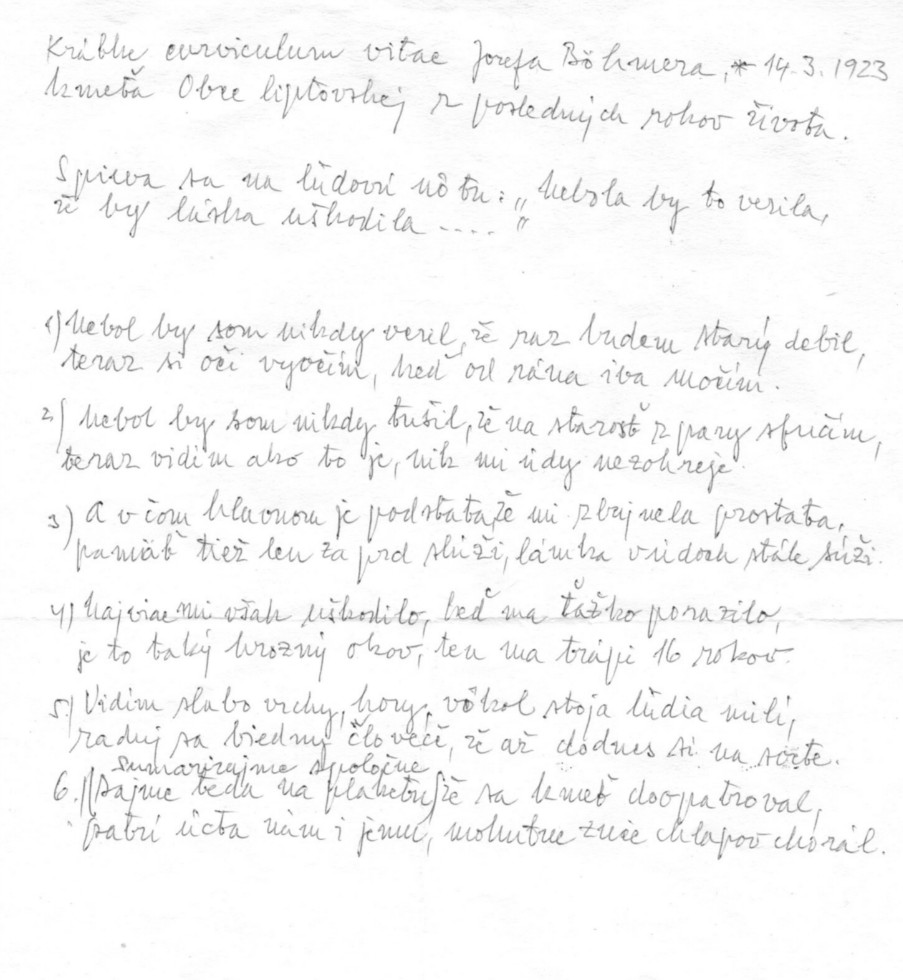 Krátke curviculum vitae Jozefa Böhmera, * 14.3.1923
kmeťa Obce liptovskej z posledných rokov života.
Spieva sa na ľúdovú nôtu: „Nebola by to verila,
že by láska uškodila ...."
1) Nebol by som nikdy veril, že raz budem starý debil,
teraz si oči vyočím, keď od rána iba močím.
2) Nebol by som nikdy tušil, že na starosť z pary sfučím,
teraz vidím ako to je, nik mi údy nezohreje.
3) A v čom hlavnom je podstata, že mi zbujnela prostata,
pamäť tiež len za prd slúži, lámka v údoch stále súži.
4) Najviac mi však uškodilo, keď ma ťažko porazilo,
je to taký hrozný okov, ten ma trápi 16 rokov.
5.) Vidím slabo vrchy, hory, vôkol stoja ľúdia milí,
raduj sa biedny človeče, že až dodnes si na svete.
sumarizujme spoločne
6.) teda na plaketu, že sa kmeť doopatroval,
patrí úcta nám i jemu, mohutne znie chlapov chorál.